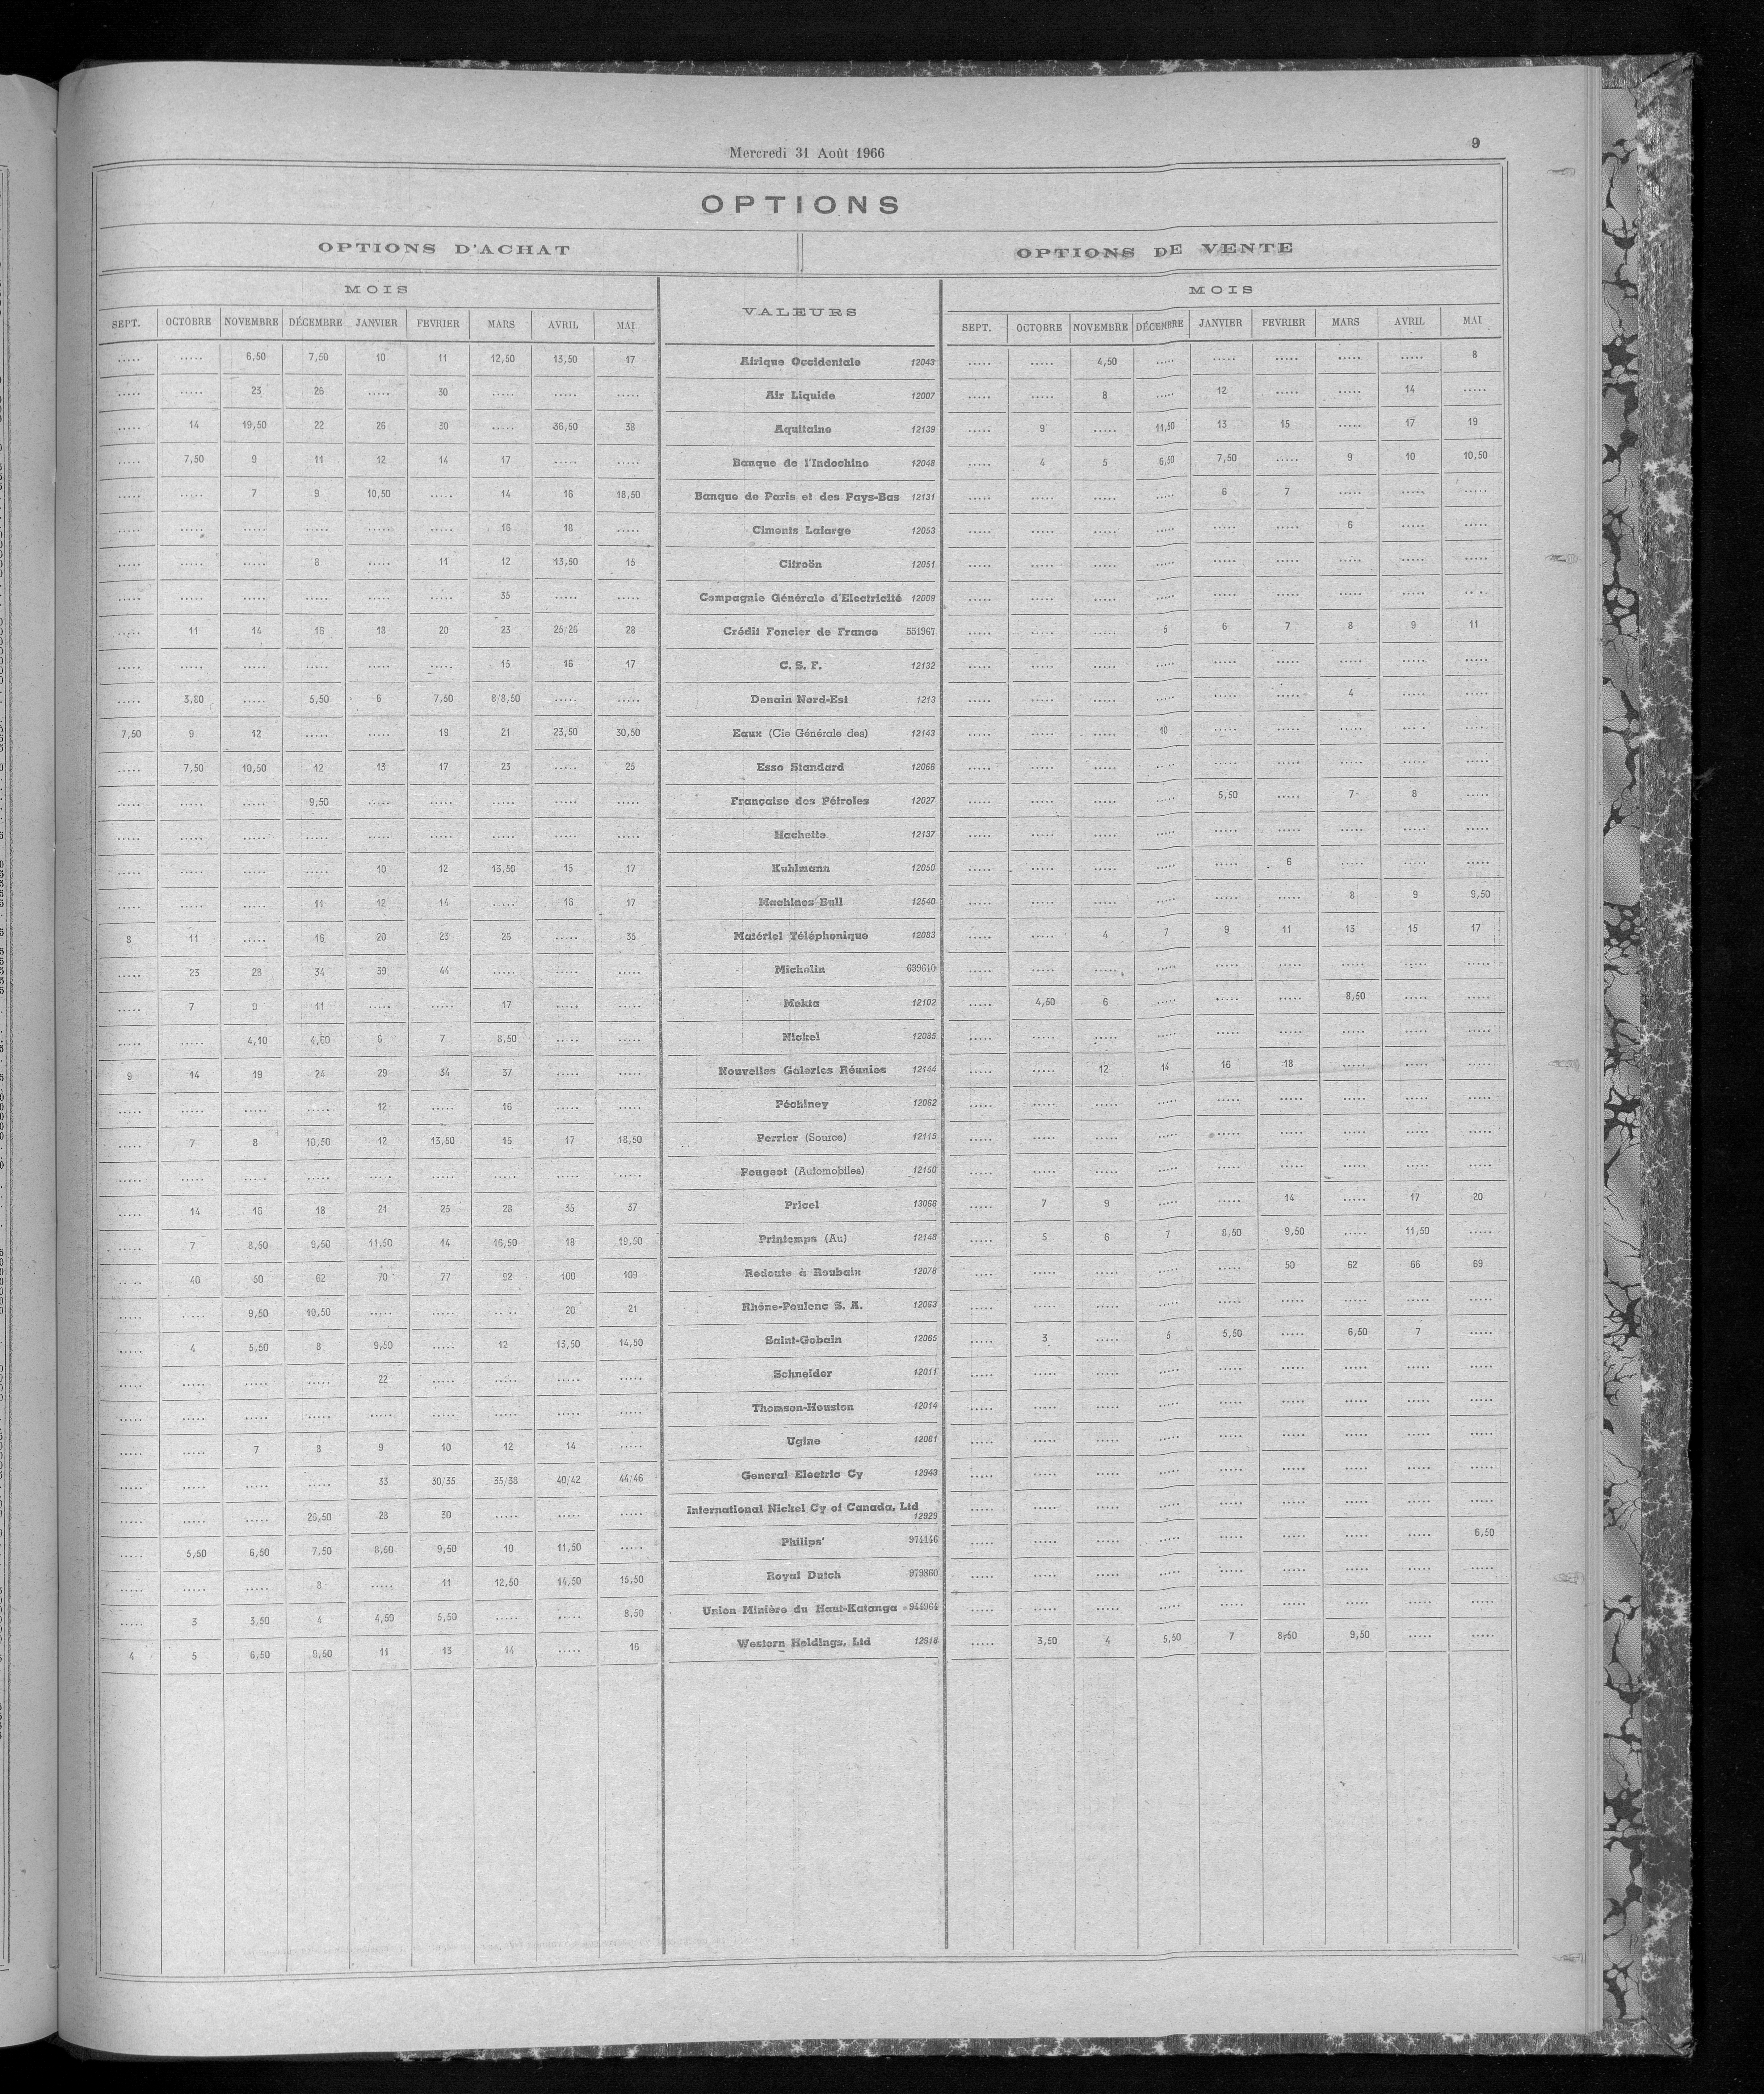 Mercredi 31 Août 1966
9
OPTIONS
OPTIONS D'ACHAT OPTIONS DE VENTE
MOIS VALEURS MOIS
SEPT. OCTOBRE NOVEMBRE DÉCEMBRE JANVIER FEVRIER MARS AVRIL MAI SEPT. OCTOBRE NOVEMBRE DÉCEMBRE JANVIER FEVRIER MARS AVRIL MAI
..... ..... 6,50 7,50 10 11 12,50 13,50 17 Afrique Occidentale 12043 ..... ..... 4,50 ..... ..... ..... ..... ..... 8
..... ..... 23 26 ..... 30 ..... ..... ..... Air Liquide 12007 ..... ..... 8 ..... 12 ..... ..... 14 .....
..... 14 19,50 22 26 30 ..... 36,50 38 Aquitaine 12139 ..... 9 ..... 11,50 13 15 ..... 17 19
..... 7,50 9 11 12 14 17 ..... ..... Banque de l'Indochine 12048 ..... 4 5 6,50 7,50 ..... 9 10 10,50
..... ..... 7 9 10,50 ..... 14 16 18,50 Banque de Paris et des Pays-Bas 12131 ..... ..... ..... ..... 6 7 ..... ..... .....
..... ..... ..... ..... ..... ..... 16 18 ..... Ciments Lafarge 12053 ..... ..... ..... ..... ..... ..... 6 ..... .....
..... ..... ..... 8 ..... 11 12 13,50 15 Citroën 12051 ..... ..... ..... ..... ..... ..... ..... ..... .....
..... ..... ..... ..... ..... ..... 35 ..... ..... Compagnie Générale d'Electricité 12009 ..... ..... ..... ..... ..... ..... ..... ..... .....
..... 11 14 16 18 20 23 25/26 28 Crédit Foncier de France 531967 ..... ..... ..... 5 6 7 8 9 11
..... ..... ..... ..... ..... ..... 15 16 17 C. S. F. 12132 ..... ..... ..... ..... ..... ..... ..... ..... .....
..... 3,80 ..... 5,50 6 7,50 8/8,50 ..... ..... Denain Nord-Est 1213 ..... ..... ..... ..... ..... ..... 4 ..... .....
7,50 9 12 ..... ..... 19 21 23,50 30,50 Eaux (Cie Générale des) 12143 ..... ..... ..... 10 ..... ..... ..... ..... .....
..... 7,50 10,50 12 13 17 23 ..... 25 Esso Standard 12066 ..... ..... ..... ..... ..... ..... ..... ..... .....
..... ..... ..... 9,50 ..... ..... ..... ..... ..... Française des Pétroles 12027 ..... ..... ..... ..... 5,50 ..... 7 8 .....
..... ..... ..... ..... ..... ..... ..... ..... ..... Hachette 12137 ..... ..... ..... ..... ..... ..... ..... ..... .....
..... ..... ..... ..... 10 12 13,50 15 17 Kuhlmann 12050 ..... ..... ..... ..... ..... 6 ..... ..... .....
..... ..... ..... 11 12 14 ..... 16 17 Machines Bull 12540 ..... ..... ..... ..... ..... ..... 8 9 9,50
8 11 ..... 16 20 23 26 ..... 35 Matériel Téléphonique 12083 ..... ..... 4 7 9 11 13 15 17
..... 23 28 34 39 44 ..... ..... ..... Michelin 639610 ..... ..... ..... ..... ..... ..... ..... ..... .....
..... 7 9 11 ..... ..... 17 ..... ..... Mokta 12102 ..... 4,50 6 ..... ..... ..... 8,50 ..... .....
..... ..... 4,10 4,80 6 7 8,50 ..... ..... Nickel 12085 ..... ..... ..... ..... ..... ..... ..... ..... .....
9 14 19 24 29 34 37 ..... ..... Nouvelles Galeries Réunies 12144 ..... ..... 12 14 16 18 ..... ..... .....
..... ..... ..... ..... 12 ..... 16 ..... ..... Péchiney 12062 ..... ..... ..... ..... ..... ..... ..... ..... .....
..... 7 8 10,50 12 13,50 15 17 18,50 Perrier (Source) 12115 ..... ..... ..... ..... ..... ..... ..... ..... .....
..... ..... ..... ..... ..... ..... ..... ..... ..... Peugeot (Automobiles) 12150 ..... ..... ..... ..... ..... ..... ..... ..... .....
..... 14 16 18 21 25 28 35 37 Pricel 13066 ..... 7 9 ..... ..... 14 ..... 17 20
..... 7 8,50 9,50 11,50 14 16,50 18 19,50 Printemps (Au) 12145 ..... 5 6 7 8,50 9,50 ..... 11,50 .....
..... 40 50 62 70 77 92 100 109 Redoute à Roubaix 12078 ..... ..... ..... ..... ..... 50 62 66 69
..... ..... 9,50 10,50 ..... ..... ..... 20 21 Rhône-Poulenc S. A. 12063 ..... ..... ..... ..... ..... ..... ..... ..... .....
..... 4 5,50 8 9,50 ..... 12 13,50 14,50 Saint-Gobain 12065 ..... 3 ..... 5 5,50 ..... 6,50 7 .....
..... ..... ..... ..... 22 ..... ..... ..... ..... Schneider 12011 ..... ..... ..... ..... ..... ..... ..... ..... .....
..... ..... ..... ..... ..... ..... ..... ..... ..... Thomson-Houston 12014 ..... ..... ..... ..... ..... ..... ..... ..... .....
..... ..... 7 8 9 10 12 14 ..... Ugine 12061 ..... ..... ..... ..... ..... ..... ..... ..... .....
..... ..... ..... ..... 33 30/35 35/38 40/42 44/46 General Electric Cy 12943 ..... ..... ..... ..... ..... ..... ..... ..... .....
..... ..... ..... 26,50 28 30 ..... ..... ..... International Nickel Cy of Canada, Ltd 12929 ..... ..... ..... ..... ..... ..... ..... ..... .....
..... 5,50 6,50 7,50 8,50 9,50 10 11,50 ..... Philips' 974146 ..... ..... ..... ..... ..... ..... ..... ..... 6,50
..... ..... ..... 8 ..... 11 12,50 14,50 15,50 Royal Dutch 979860 ..... ..... ..... ..... ..... ..... ..... ..... .....
..... 3 3,50 4 4,50 5,50 ..... ..... 8,50 Union Minière du Haut-Katanga 944964 ..... ..... ..... ..... ..... ..... ..... ..... .....
4 5 6,50 9,50 11 13 14 ..... 16 Western Holdings, Ltd 12916 ..... 3,50 4 5,50 7 8,50 9,50 ..... .....